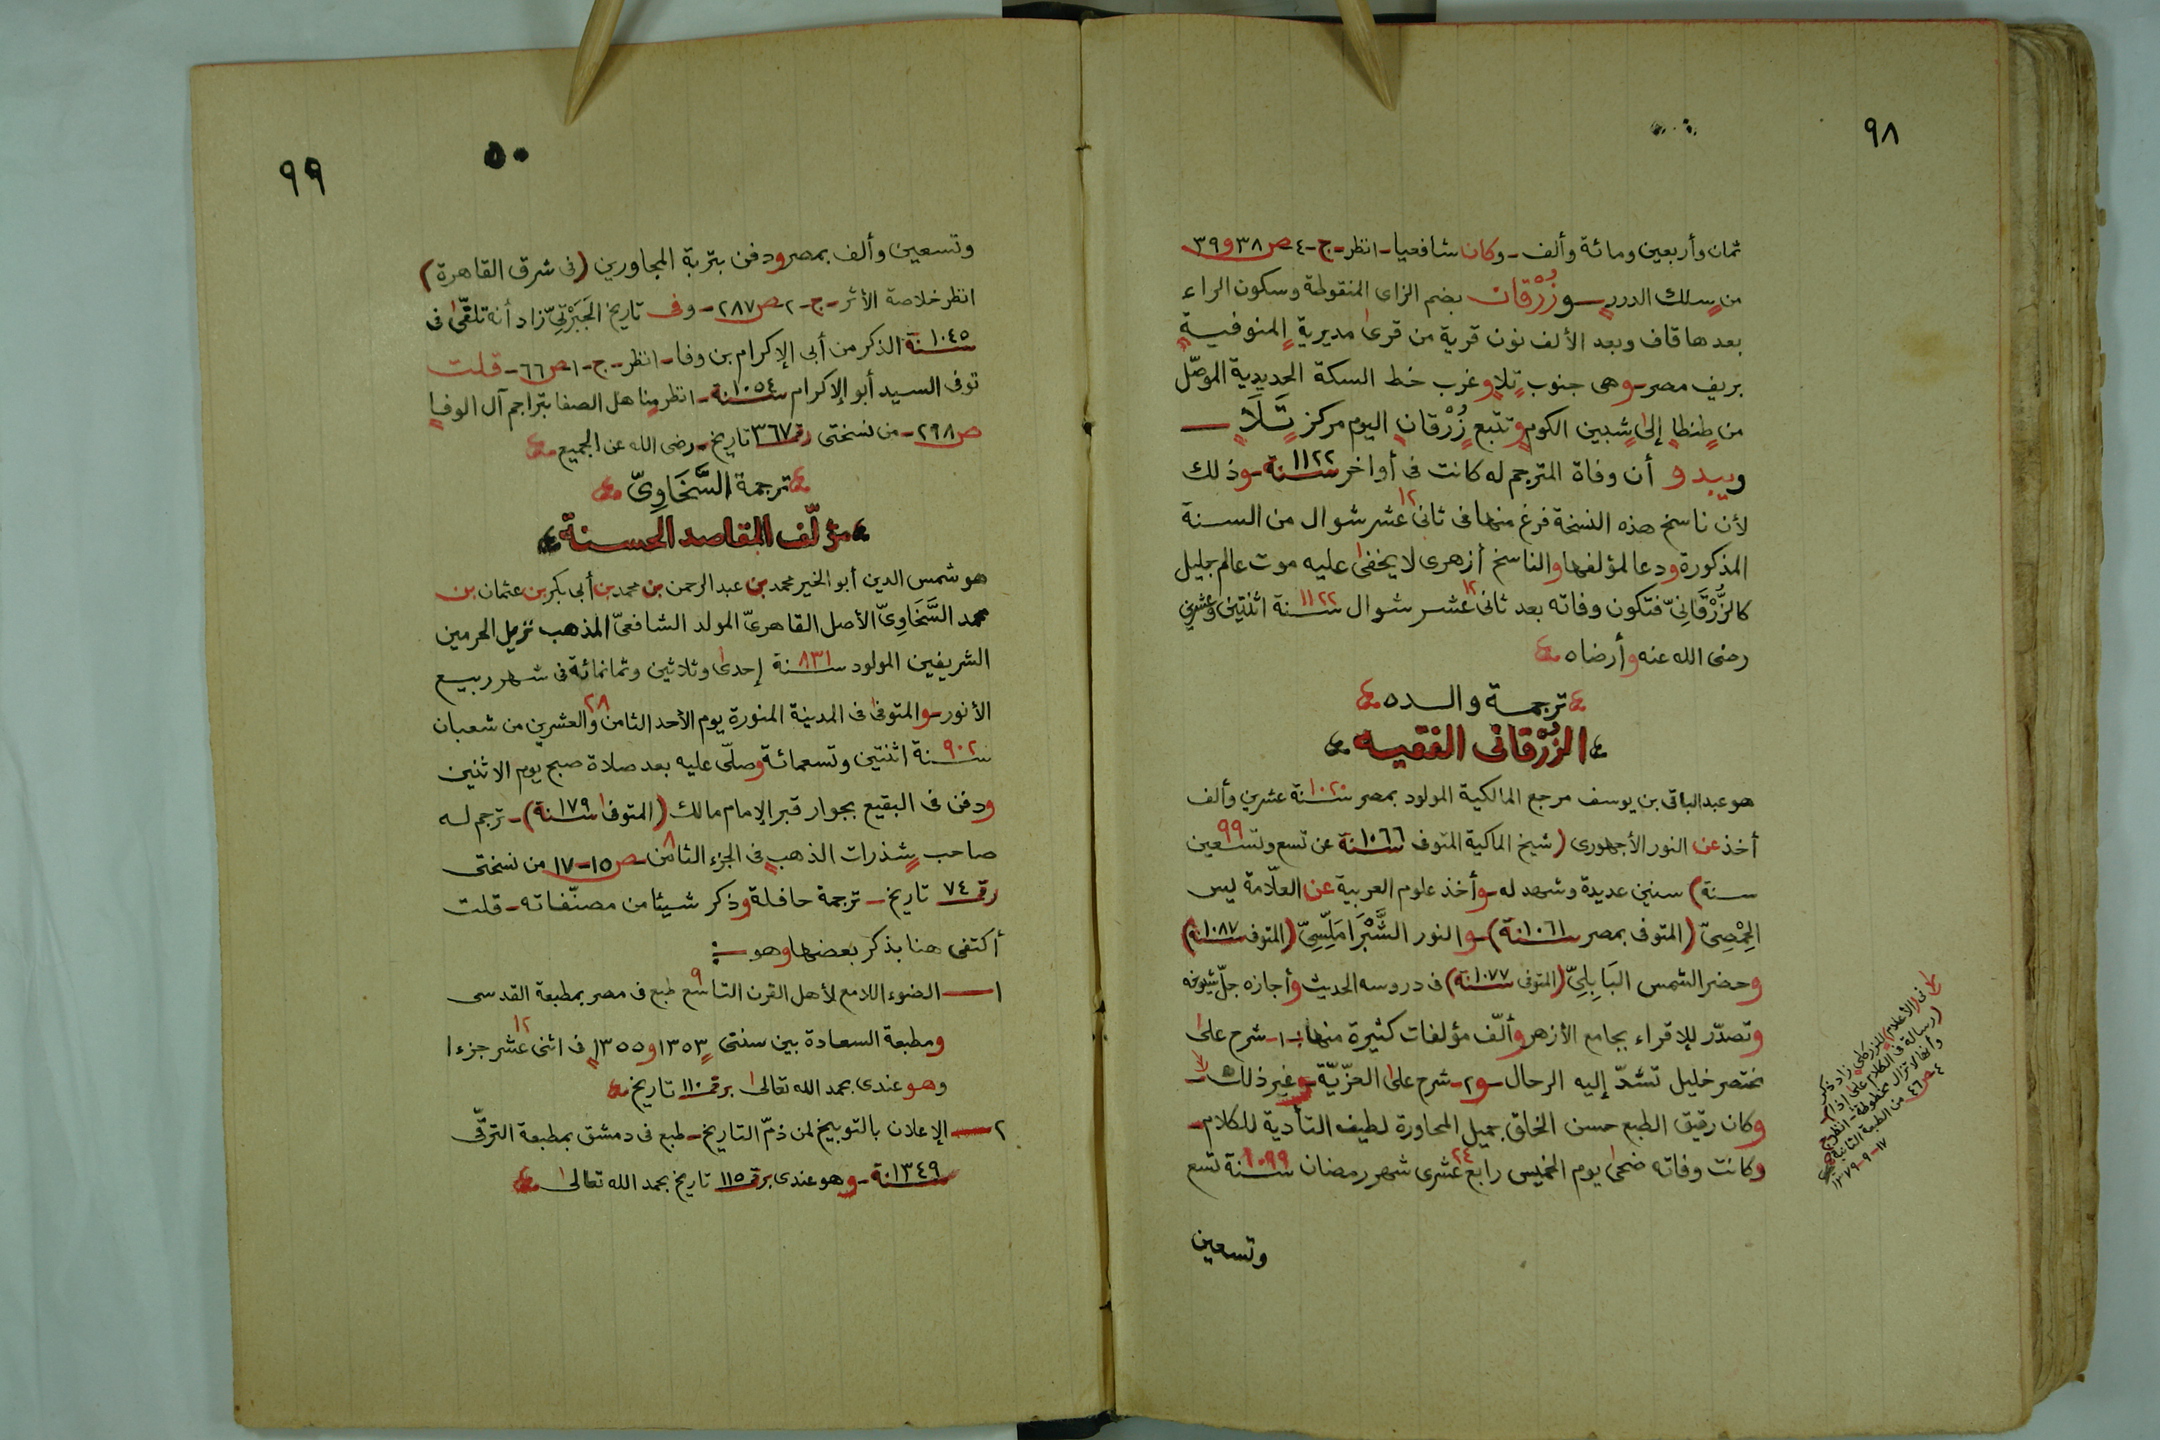 ٩٨
ثمان وأربعين ومائة وألف - وكان شافعيا - انظر - ج - ٤ - ص ٣٨ و ٣٩
من سلك الدرر - وزُرْقان بضم الزاى المنقوطة وسكون الراء
بعدها قاف وبعد الألف نون قرية من قرى مديرية المنوفية
بريف مصر - وهى جنوب تلا وغرب خط السكة الحديدية الموصّل
من طنطا إلى شبين الكوم وتتبع زُرْقان اليوم مركز تَلَا —
ويبدو أن وفاة المترجم له كانت فى أواخر سنة ١١٢٢ - وذلك
لأن ناسخ هذه النسخة فرغ منها فى ثانى ١٢ عشر شوال من السنة
المذكورة ودعا لمؤلفها والناسخ أزهرى لا يخفى عليه موت عالم جليل
كالزُّرْقَانِىّ فتكون وفاته بعد ثانى ١٢ عشر شوال سنة ١١٢٢ اثنتين وعشرين
رضى الله عنه وأرضاه
ترجمة والده
الزُرْقانى الفقيه
هو عبد الباقى بن يوسف مرجع المالكية المولود بمصر سنة ١٠٢٠ عشرين وألف
أخذ عن النور الأجهورى (شيخ المالكية المتوف سنة ١٠٦٦ عن تسع وتسعين ٩٩
سنة) سنين عديدة وشهد له - وأخذ علوم العربية عن العلّامة يس
الحِمْصِىّ (المتوفى بمصر سنة ١٠٦١) - والنور الشَّبْرَامَلِّسِىّ (المتوف سنة ١٠٨٧)
وحضر الشمس البَابِلِىّ (المتوفى سنة ١٠٧٧) فى دروسه الحديث وأجازه جلّ شيوخه
وتصدّر للإقراء بجامع الأزهر وألّف مؤلفات كثيرة منها :- ١ - شرح على
مختصر خليل تشدّ إليه الرحال - و ٢ - شرح على العزّيّة - وغير ذلك -
وكان رقيق الطبع حسن الخلق جميل المحاورة لطيف التأدية للكلام -
وكانت وفاته ضحى يوم الخميس رابع ٢٤ عشرى شهر رمضان سنة ١٠٩٩ تسع
وتسعين
فى (الأعلام) للزركلى زاد ذكر
(رسالة فى الكلام على إذا)
وأنها لا تزال مخطوطة - انظر ج
٤ - ص ٤٦ من الطبعة الثانية
١٧ - ٩ - ١٣٧٩
٩٩
٥٠
وتسعين وألف بمصر ودفن بتربة المجاورين (فى شرق القاهرة)
انظر خلاصة الأثر - ج - ٢ - ص ٢٨٧ - وفى تاريخ الجَبَرْتِىّ زاد أنه تلقّى فى
سنة ١٠٤٥ الذكر من أبى الإكرام بن وفا - انظر - ج - ١ - ص ٦٦ - قلت
توفى السيد أبو الإكرام سنة ١٠٥٤ - انظر مناهل الصفا بتراجم آل الوفا
ص ٢٩٨ - من نسختى رقم ٣٦٧ تاريخ - رضى الله عن الجميع
ترجمة السَّخَاوِىّ
مؤلّف المقاصد الحسنة
هو شمس الدين أبو الخير محمد بن عبد الرحمن بن محمد بن أبى بكر بن عثمان بن
محمد السَّخَاوِىّ الأصل القاهرىّ المولد الشافعىّ المذهب نزيل الحرمين
الشريفين المولود سنة ٨٣١ إحدى وثلاثين وثمانمائة فى شهر ربيع
الأنور - والمتوفى فى المدينة المنورة يوم الأحد الثامن ٢٨ والعشرين من شعبان
سنة ٩٠٢ اثنتين وتسعمائة وصلّى عليه بعد صلاة صبح يوم الاثنين
ودفن فى البقيع بجوار قبر الإمام مالك (المتوفى سنة ١٧٩) - ترجم له
صاحب شذرات الذهب فى الجزء الثامن ٨ - ص ١٥ - ١٧ من نسختى
رقم ٧٤ تاريخ - ترجمة حافلة وذكر شيئا من مصنّفاته - قلت
أكتفى هنا بذكر بعضها وهو :—
١ — الضوء اللامع لأهل القرن التاسع ٩ طبع فى مصر بمطبعة القدسى
ومطبعة السعادة بين سنتى ١٣٥٣ و ١٣٥٥ فى اثنى ١٢ عشر جزءا
وهو عندى بحمد الله تعالى برقم ١١٠ تاريخ
٢ — الإعلان بالتوبيخ لمن ذمّ التاريخ - طبع فى دمشق بمطبعة الترقّى
سنة ١٣٤٩ - وهو عندى برقم ١١٥ تاريخ بحمد الله تعالى